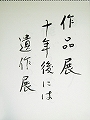 作品展
十年後には
遺作展